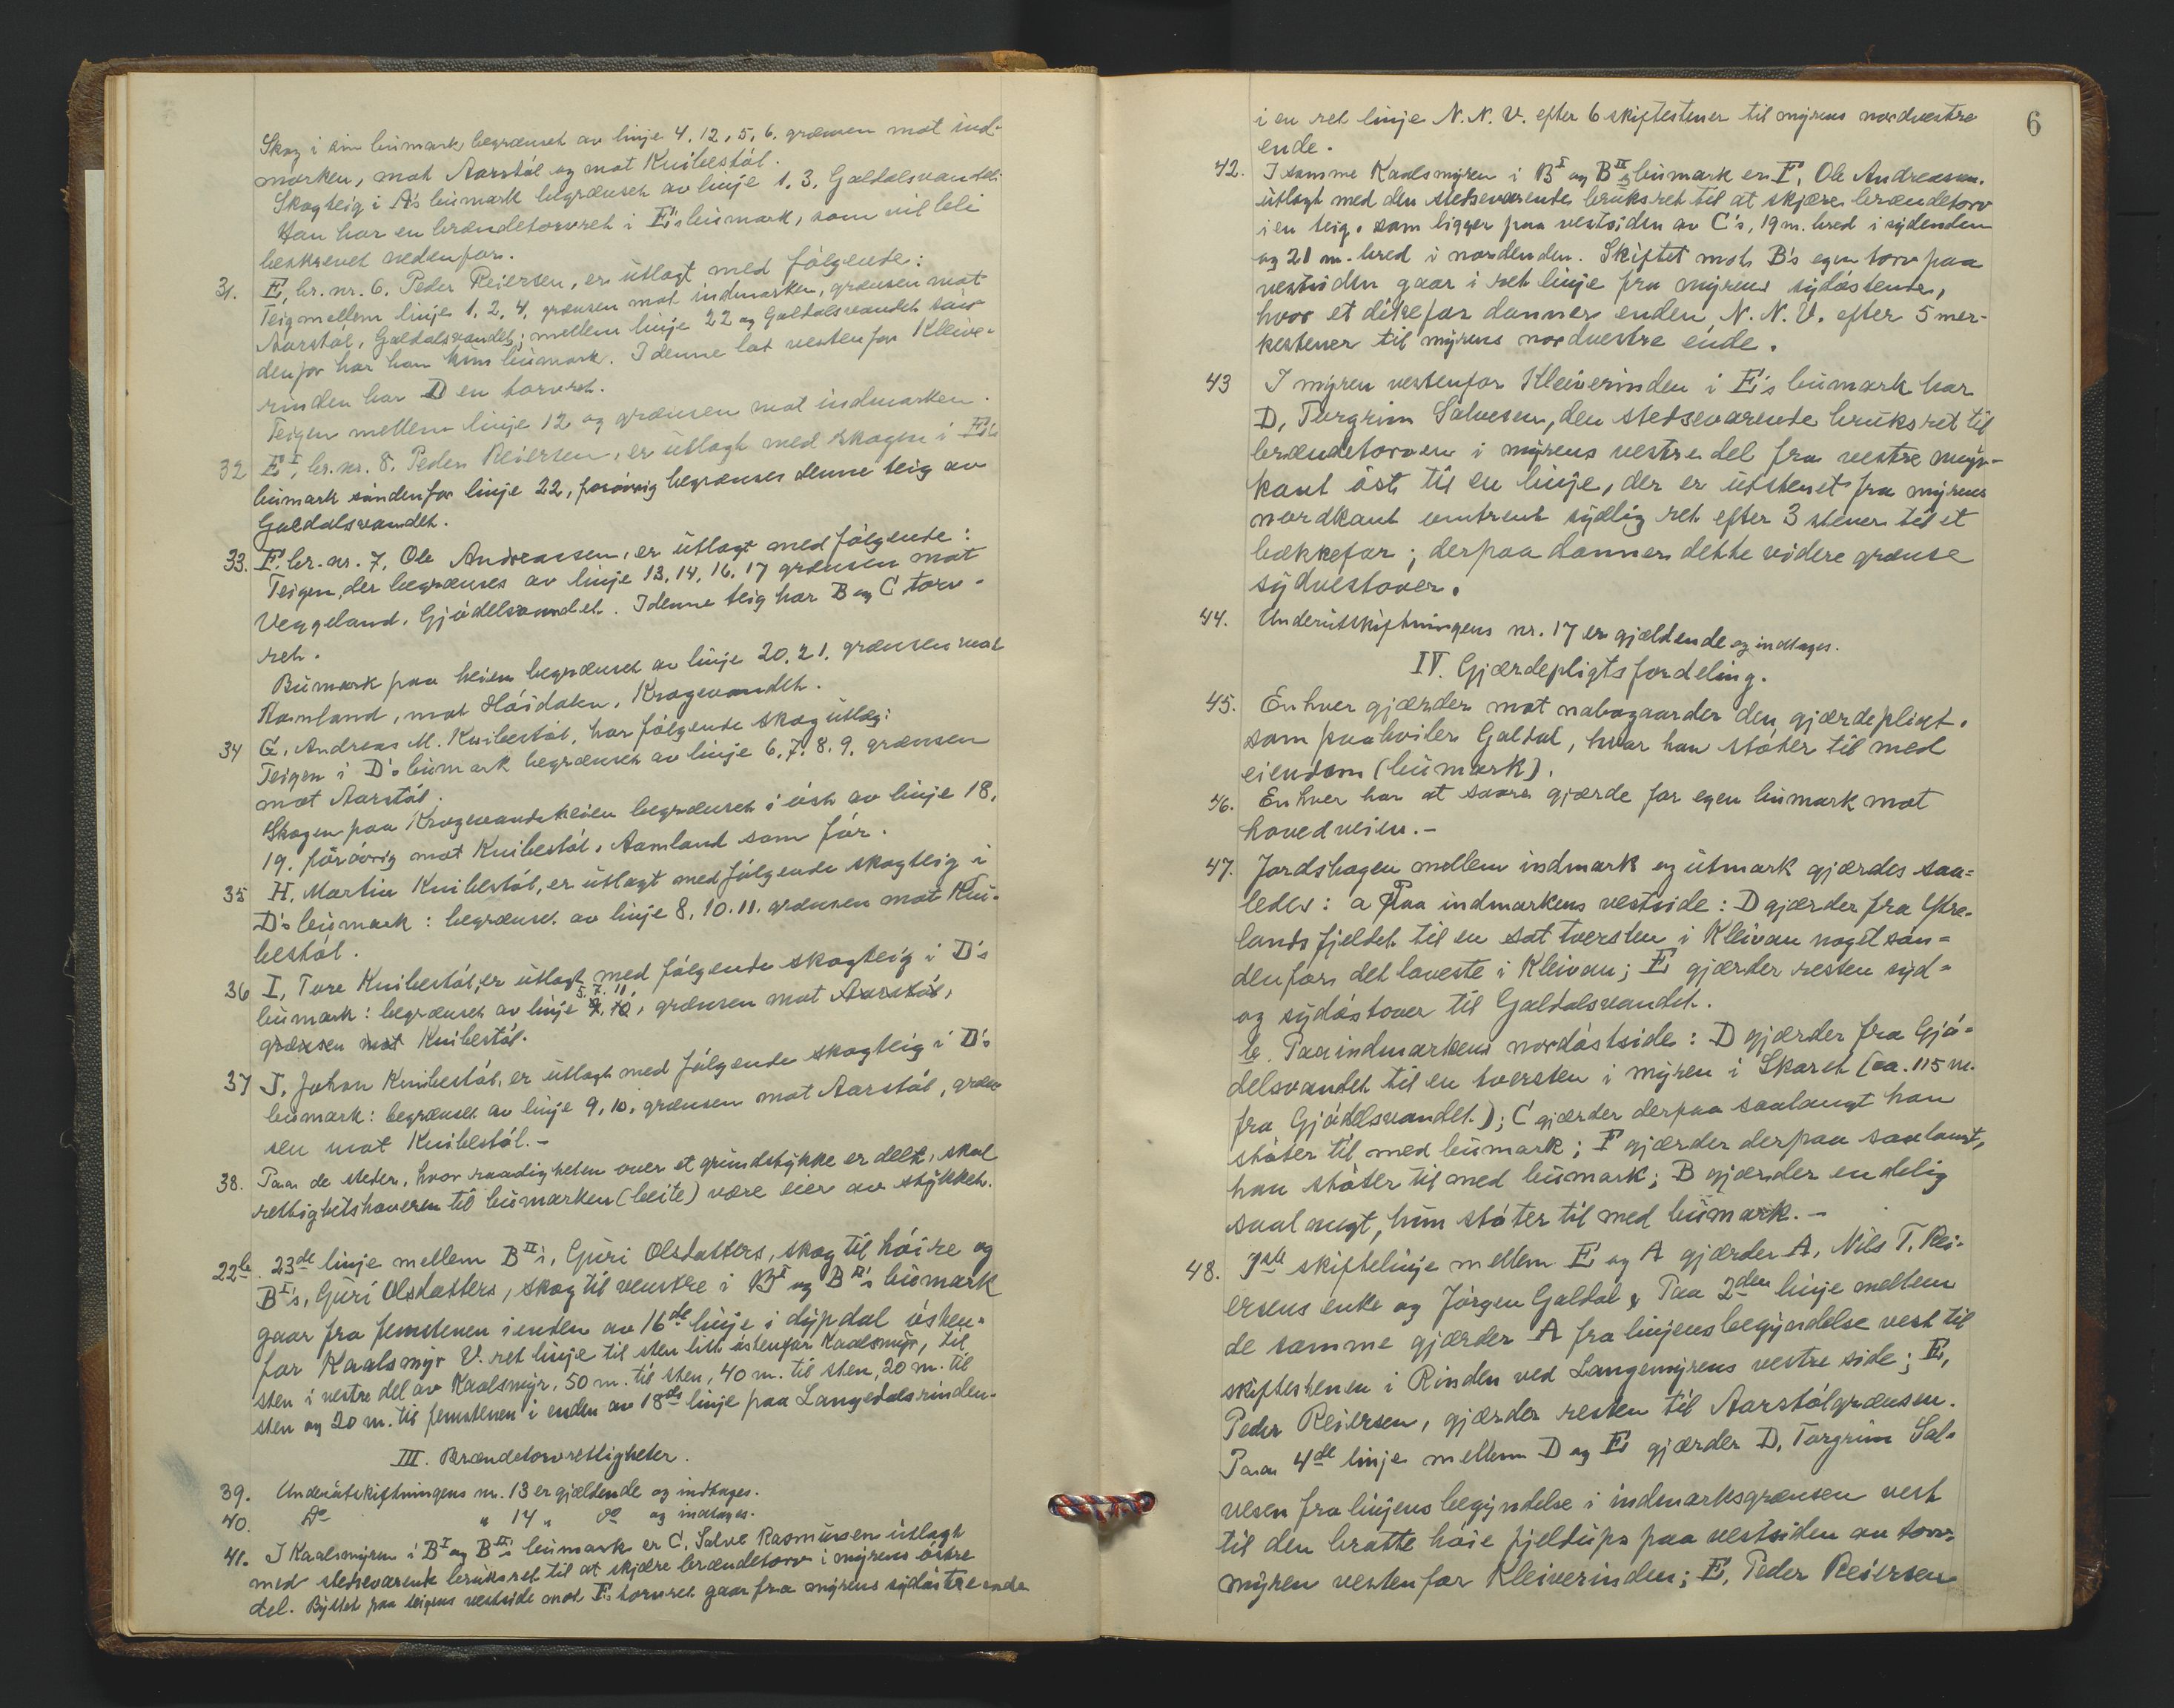 Skog i sin bumark begrænset av linje 4, 12, 5, 6. grænsen mot ind-
marken, mot Aarstøl og mot Knibestøl.
Skogteig i A's bumark begrænset av linje 1. 3, Galdalsvandet.
Han har en brændetorvret i E's bumark, som vil bli
beskrevet nedenfor.
31. E, br. nr. 6. Peder Reiersen, er utlagt med følgende:
Teig mellem linje 1. 2. 4, grænsen mot indmarken, grænsen mot
Aarstøl, Galdalsvandet; mellem linje 22 og Galdalsvandet søn-
denfor har han kun bumark. I denne lot vestenfor Kleive-
rinden har D en torvret.
Teigen mellem linje 12 og grænsen mot indmarken.
32 E I, br. nr. 8. Peder Reiersen, er utlagt med skogen i E's
bumark søndenfor linje 22, forøvrig begrænses denne teig av
Galdalsvandet.
33. F. br. nr. 7, Ole Andreassen, er utlagt med følgende:
Teigen, der begrænses av linje 13, 14, 16, 17 grænsen mot
Veggeland, Gjødelsvandet. I denne teig har B og C torv-
ret.
Bumark paa heien begrænset av linje 20. 21. grænsen mot
Ramland, mot Høidalen, Krogevandet.
34 G. Andreas M. Knibestøl, har følgende skogutlæg:
Teigen i D's bumark begrænset av linje 6. 7. 8. 9. grænsen
mot Aarstøl.
Skogen paa Krogevandsheien begrænset i øst av linje 18,
19. forøvrig mot Knibestøl, Aamland som før.
35 H, Martin Knibestøl, er utlagt med følgende skogteig i
D's bumark: begrænset av linje 8. 10. 11. grænsen mot Kni-
bestøl.
36 I, Tore Knibestøl, er utlagt med følgende skogteig i D's
5. 7. 11,
bumark: begrænset av linje 9, 10, grænsen mot Aarstøl,
grænsen mot Knibestøl.
37 J, Johan Knibestøl, er utlagt med følgende skogteig i D's
bumark: begrænset av linje 9, 10, grænsen mot Aarstøl, græn-
sen mot Knibestøl. -
38. Paa de steder, hvor raadigheten over et grundstykke er delt, skal
rettighetshaveren til bumarken (beite) være eier av stykket.
22b. 23de linje mellem B II's, Guri Olsdatters, skog til høire og
B I's, Guri Olsdatters, skog til venstre i B I og B II's bumark
gaar fra femstenen i enden av 16de linje i dypdal østen-
for Kaalsmyr V. ret linje til sten litt østenfor Kaalsmyr, til
sten i vestre del av Kaalsmyr, 50 m. til sten, 40 m. til sten, 20 m. til
sten og 20 m. til femstenen i enden av 18de linje paa Langedalsrinden.
III. Brændetorvrettigheter.
39. Underutskiftningens nr. 13 er gjældende og indtages.
40. Do " 14 " do og indtages.
41. I Kaalsmyren i B I og B II's bumark er C, Salve Rasmussen utlagt
med stedsevarende bruksret til at skjære brændetorv i myrens østre
del. Byttet paa teigens vestside mot F's torvret gaar fra myrens sydøstre ende
6
i en ret linje N. N. V. efter 6 skiftestener til myrens nordvestre
ende.
42. I samme Kaalsmyren i B I og B II's bumark er F, Ole Andreassen,
utlagt med den stedsevarende bruksret til at skjære brændetorv
i en teig, som ligger paa vestsiden av C's, 19 m. bred i sydenden
og 21 m. bred i nordenden. Skiftet mot B's egen torv paa
vestsiden gaar i ret linje fra myrens sydøstende,
hvor et dikefar danner enden, N. N. V. efter 5 mer-
kestener til myrens nordvestre ende.
43 I myren vestenfor Kleiverinden i E's bumark har
D, Torgrim Salvesen, den stedsevarende bruksret til
brændetorven i myrens vestre del fra vestre myr-
kant øst til en linje, der er utstenet fra myrens
nordkant omtrent sydlig ret efter 3 stener til et
bækkefar; derpaa danner dette videre grænse
sydvestover.
44. Underutskiftningens nr. 17 er gjældende og indtages.
IV. Gjærdepligtsfordeling.
45. Enhver gjærder mot nabogaarder den gjærdepligt,
som paahviler Galdal, hvor han støter til med
eiendom (bumark).
46. Enhver har at svare gjærde for egen bumark mot
hovedveien. -
47. Jordshagen mellem indmark og utmark gjærdes saa-
ledes: a Paa indmarkens vestside: D gjærder fra Ytre-
lands fjeldet til en sat tversten i Kleivan noget søn-
denfor det laveste i Kleivan; E gjærder resten syd-
og sydøstover til Galdalsvandet.
b. Paa indmarkens nordøstside: D gjærder fra Gjø-
delsvandet til en tversten i myren i Skaret (ca. 115 m.
fra Gjødelsvandet.); C gjærder derpaa saalangt han
støter til med bumark; F gjærder derpaa saalangt,
han støter til med bumark; B gjærder endelig
saalangt, hun støter til med bumark. -
48. skiftelinje mellem E og A gjærder A, Nils T. Rei-
ersens enke og Jørgen Galdal. Paa 2den linje mellem
de samme gjærder A fra linjens begyndelse vest til
skiftestenen i Rinden ved Langemyrens vestre side; E,
Peder Reiersen, gjærder resten til Aarstølgrænsen.
Paa 4de linje mellem D og E gjærder D, Torgrim Sal-
vesen fra linjens begyndelse i indmarksgrænsen vest
til den bratte høie fjeldups paa vestsiden av torv-
myren vestenfor Kleiverinden; E, Peder Reiersen